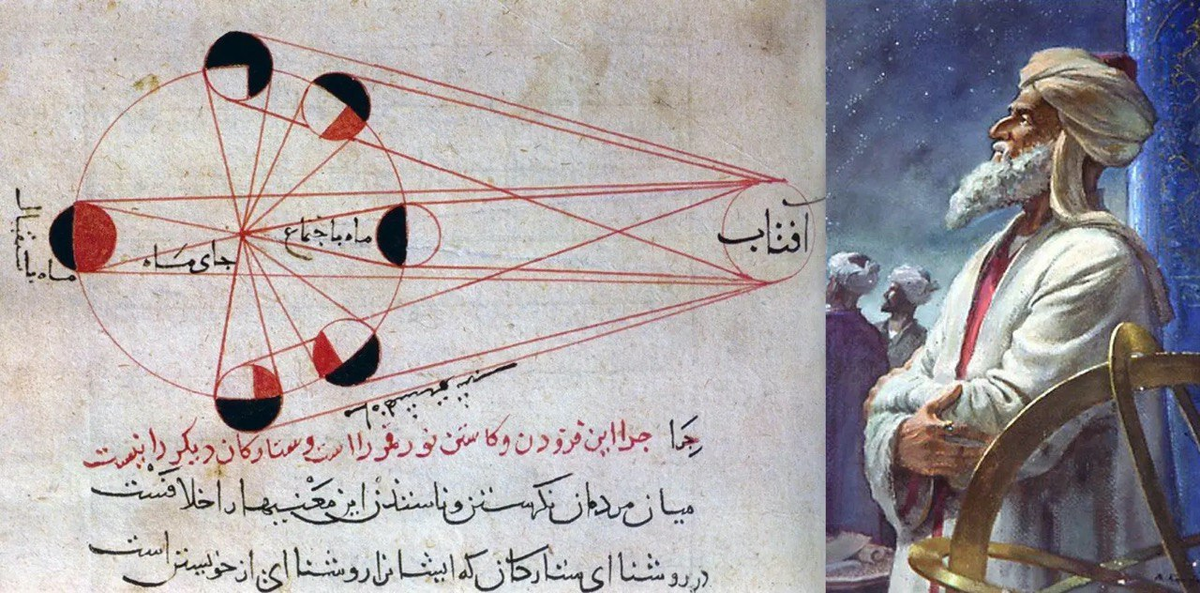 افتاب
ماه باجتماع
جای ماه
ماه باستقبال
چرا جرا این فزودن وکاستن نور قمر را است و ستارکان دیکر را نیست
میان مردمان نکرستن و دانستن این معنیها را خلافست
در روشنا ای ستارکان که ایشانرا روشنا ای از خویشتن است